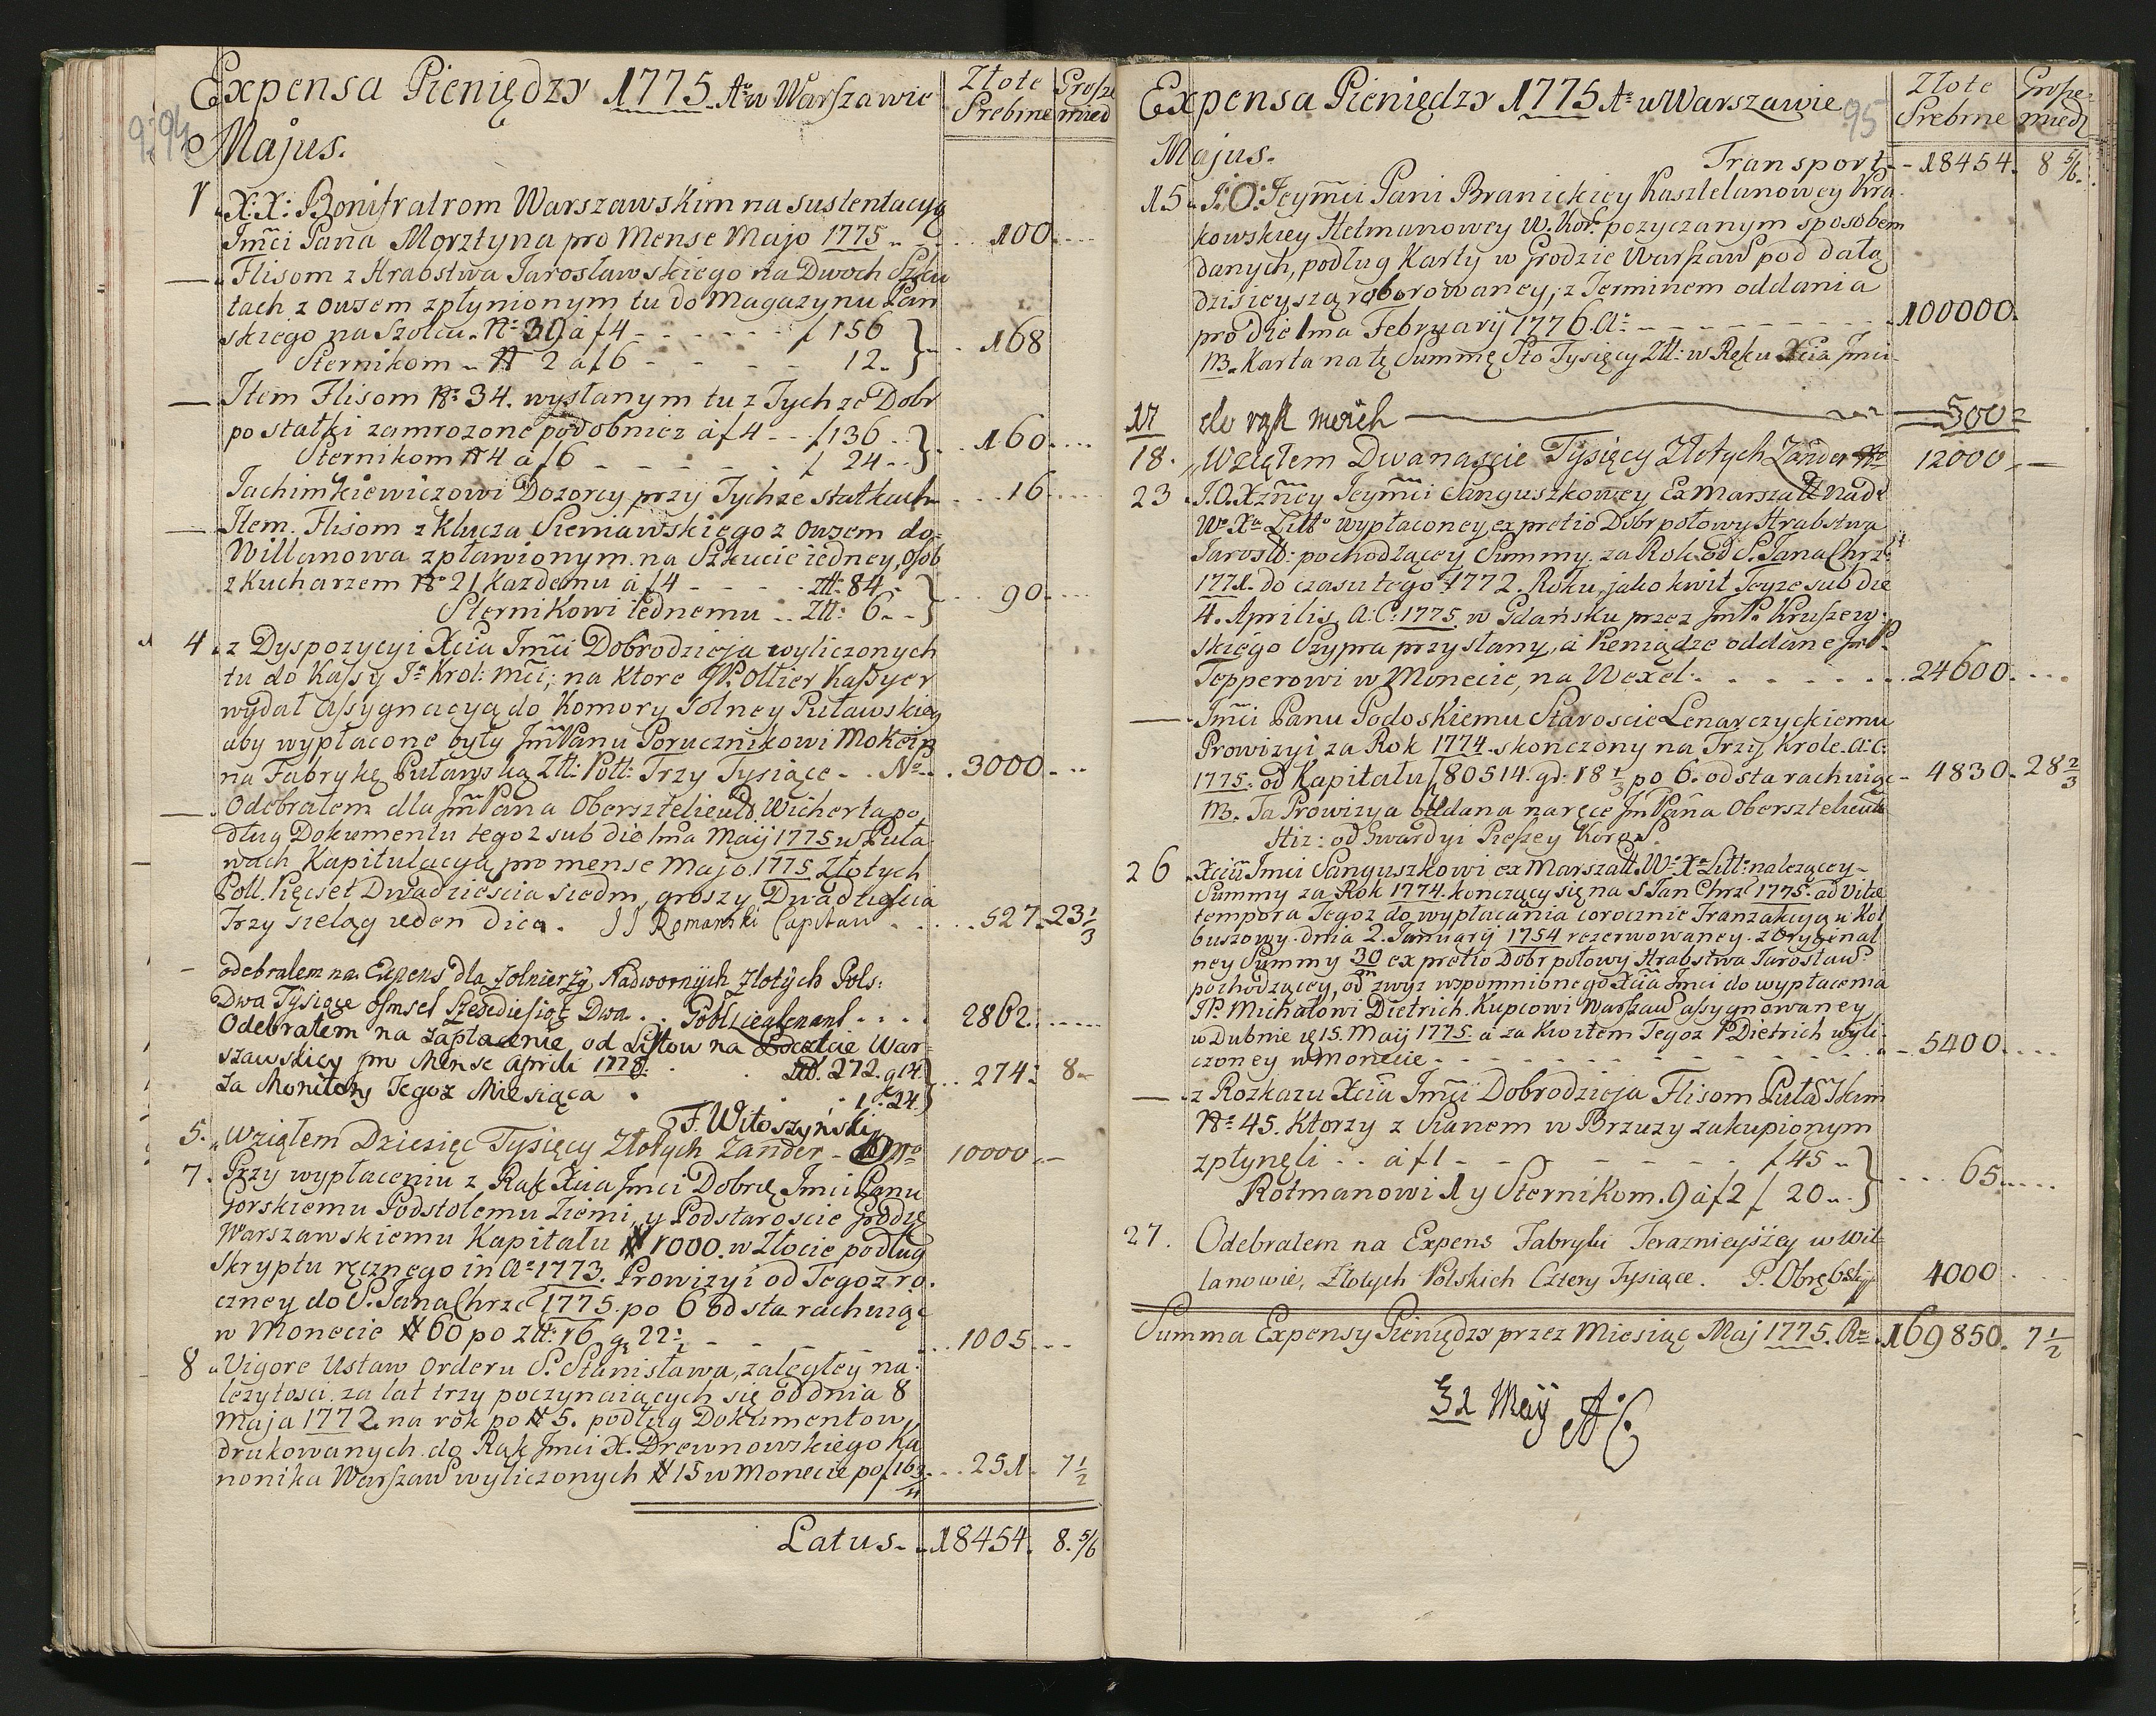 Expensa Pieniędzy 1775 Aº w Warszawie
Złote Srebrne
Grosze mied
94
Majus.
1 X.X: Bonifratrom Warszawskim na sustentacyą
Jmci Pana Morztyna pro Mense Majo 1775 100
— Flisom z Hrabstwa Jarosławskiego na Dwoch Szku
tach z owsem zpłynionym tu do Magazynu Pan
skiego na Szolcu Nº 39 a f 4 f 156
Sternikom N 2 a f 6 12. 168
— Item Flisom Nº 34. wysłanym tu z Tychze Dobr
po statki zamrozone podobniez a f 4 f 136
Sternikom N 4 a f 6 f 24 160
Jachimkiewiczowi Dozorcy przy Tychze statkach 16
— Item. Flisom z Klucza Sieniawskiego z owsem do
Willanowa zpławionym na Szkucie iedney, osob
z Kucharzem Nº 21 kazdemu a f 4 Złł: 84
Sternikowi iednemu Złł: 6 90
4 z Dyspozycyi Xcia Jmci Dobrodzieja wyliczonych
tu do Kassy Jº Krol: mci; na ktore JP. Ollier Kassyer
wydał assygnacyą do Komory Solney Puławskiey
aby wypłacone były Jm Panu Porucznikowi Mokeip
na Fabrykę Puławską Złł: Poll: Trzy Tysiące Nº 3000
— Odebrałem dla Jm Pana Oberszteliewtd. Wicherta po
dług Dokumentu tegoz sub die 1ma Maij 1775 w Puła
wach Kapitulacyą pro mense Majo 1775 Złotych
Poll. Pięcset Dwadziescia siedm, groszy Dwadziescia
Trzy szeląg ieden dico. JJ Romanski Capitan 527 23 1/3
— odebralem na Expens dla Zolnierzy Nadwornych Zlotych Pols:
Dwa Tysiące osmset Szesdiesiąt Dwa 2862
Odebrałem na zapłacenie od Listow na Poczcie War
szawskiey pro Mense Aprili 1775. Złł. 272. g 14.
Za Monitory Tegoz Miesiąca 1. 24. 274 8
F. Witoszyński
5. Wziąłem Dziesięc Tysięcy Złotych Zander 10000
7. Przy wypłaceniu z Rąk Xcia Jmci Dobrę Jmci Panu
Gorskiemu Podstolemu Ziemi, y Podstaroscie Grodzę
Warszawskiemu Kapitału # 1000. w Złocie podług
Skryptu ręcznego in Aº 1773. Prowizyi od Tegoz ro
czney do S. Jana Chrzc 1775. po 6 od sta rachuiąc
w Monecie # 60 po Złł: 16 g 22 1/2 1005
8 Vigore Ustaw Orderu S. Stanisława, zaległey na
lezytosci za lat trzy poczynaiących się od dnia 8
Maja 1772. na rok po # 5. podług Dokumentow
drukowanych do Rąk Jmci X. Drewnowskiego Ka
nonika Warszaw wyliczonych # 15 w Monecie po f 16 3/4 251 7 1/2
Latus 18454. 8. 5/6
Expensa Pieniędzy 1775 Aº w Warszawie
95
Złote Srebrne
Grosze miedz
Majus. Transport 18454. 8 5/6
15 J: O: Jeymci Pani Branickiey Kasztelanowey Kra
kowskiey Hetmanowey W. Kor. pozyczanym sposobem
danych, podług Karty w Grodzie Warszaw pod datą
dzisieyszą roborowaney; z Terminem oddania
pro die 1ma Februarij 1776. Aº 100000.
NB. Karta na tę Summę Sto Tysięcy Złł: w Ręku Xcia Jmci
17 do rąk moich 500
18. Wziąłem Dwanaście Tysięcy Złotych Zander 12000
23 J.O. Xzney Jeymci Sanguszkowey Ex Marszałł Nadw
Wº Xº Litto wypłaconey ex pretio Dobr połowy Hrabstwa
Jarosł: pochodzącey Summy za Rok od S. Jana Chrz
1771. do czasu tego 1772. Roku, jako kwit Jeyze sub die
4. Aprilis A:C: 1775. w Gdańsku przez Jm P. Kruszew
skiego Szypra przysłany, a Pieniądze oddane Jm P.
Tepperowi w Monecie, na Wexel 24600
— Jmci Panu Podoskiemu Staroscie Lenarczyckiemu
Prowizyi za Rok 1774 skonczony na Trzy Krole. A:C:
1775. od Kapitału f 80514. gr: 18 1/3 po 6. od sta rachuiąc 4830. 28 2/3
NB. Ta Prowizya oddana na ręce Jm Pana Oberszteliewta
Hiz: od Gwardyi Pieszey Koron.
26 Xciu Jmci Sanguszkowi ex Marszałł. Wº Xº Litt: nalezącey
Summy za Rok 1774. konczący się na S Jan Chrzc 1775. ad vitae
tempora Tegoz do wypłacania corocznie Tranzakcyą w Kol
buszowy dnia 2. Januarij 1754 rezerwowaney z Oryginal
ney Summy 30 ex pretio Dobr połowy Hrabstwa Jarosław
pochodzącey, od zwyz wspomnionego Xcia Jmci do wypłacenia
JP. Michałowi Dietrich Kupcowi Warszaw assygnowaney
w Dubnie d 15. Maij 1775. a za Kwitem Tegoz P Dietrich wyli
czoney w Monecie 5400
— z Rozkazu Xcia Jmci Dobrodzieja Flisom Puławskim
Nº 45. Ktorzy z Sianem w Brzuzy zakupionym
zpłynęli a f 1 f 45
Rotmanowi 1 y Sternikom. 9 a f 2 f 20 65
27. Odebrałem na Expens Fabryki Teraznieyszey w Wil
lanowie, Złotych Polskich Cztery Tysiące. P. Obrębski 4000
Summa Expensy Pieniędzy przez Miesiąc Maj 1775. Rº 169850. 7 1/2
32 Maij AC